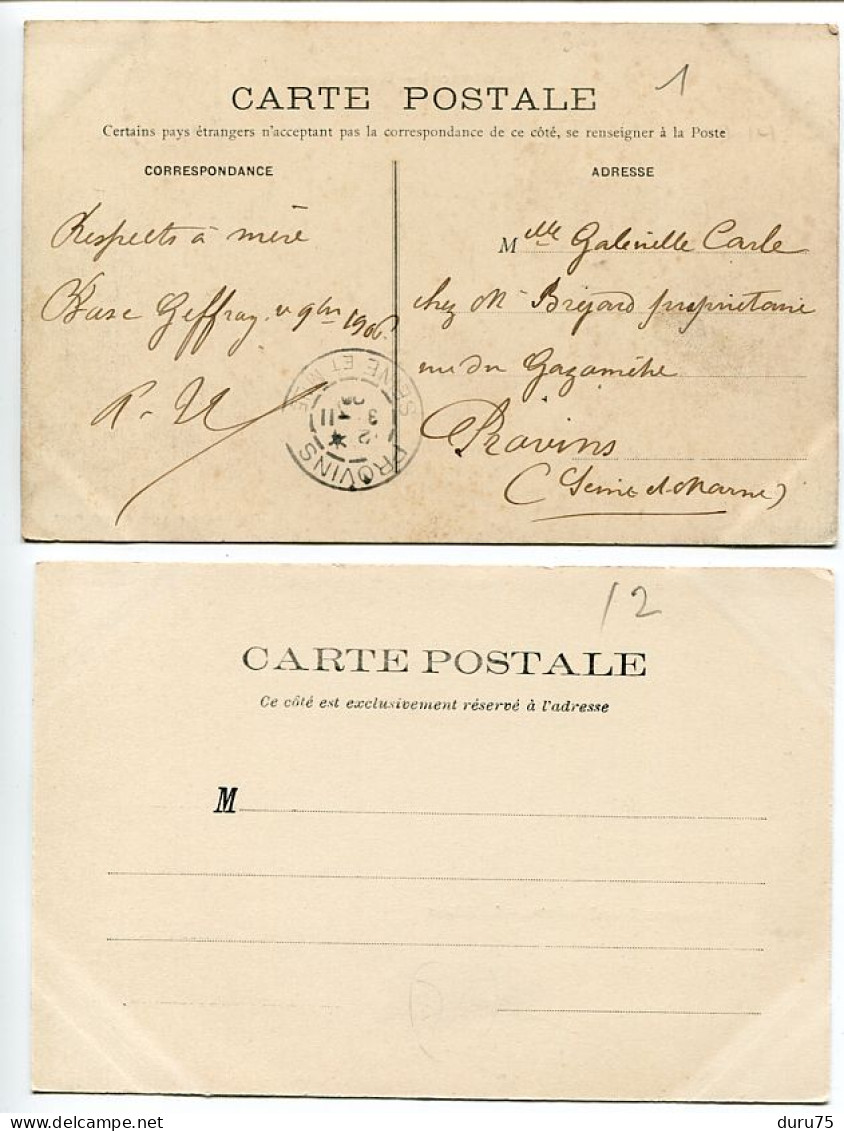 1
CARTE POSTALE
Certains pays étrangers n'acceptant pas la correspondance de ce côté, se renseigner à la Poste
CORRESPONDANCE
Respects à mère
Geffray 9bre 1906
ADRESSE
Melle Gabrielle Carle
chez Mr Bréjard propriétaire
rue du Gazomètre
Provins
(Seine et Marne)
PROVINS
SEINE ET M
12
CARTE POSTALE
Ce côté est exclusivement réservé à l'adresse
M
duru75